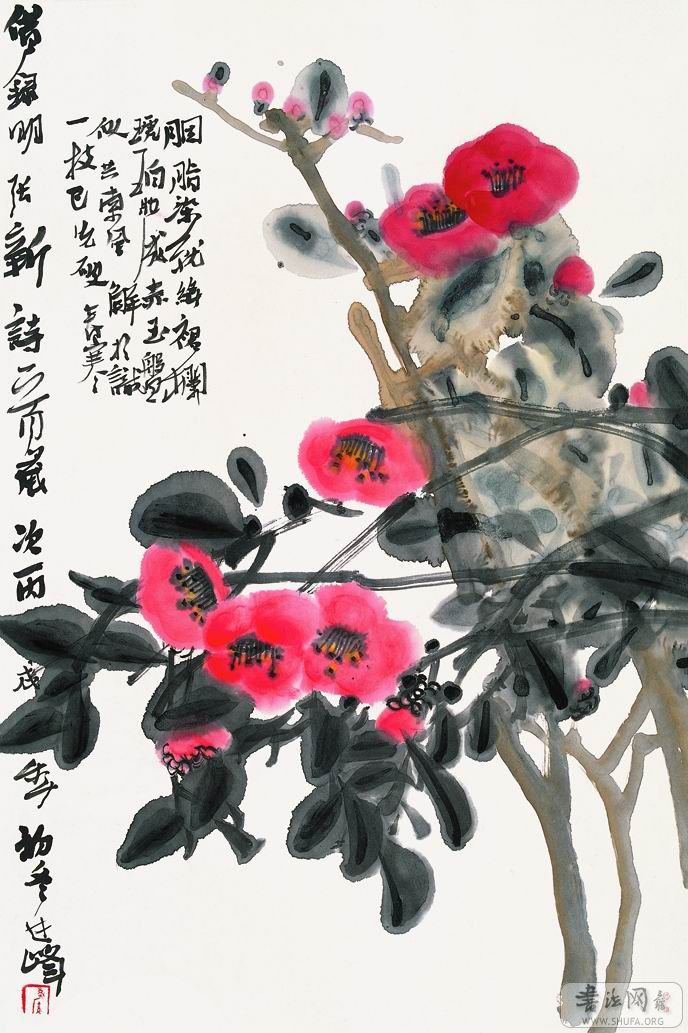 胭脂染就絳裙襴
琥珀妝成赤玉盤
似共東風解相識
一枝已先破春寒
錄明張新詩一首歲次丙戌年初冬 峰
書法网
WWW.SHUFA.ORG